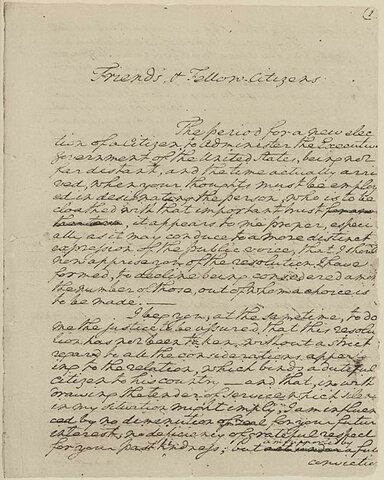 (1
Friends, & Fellow-Citizens
The period for a new elec
tion of a Citizen, to administer the Executive
Government of the United States, being not
far distant, and the time actually arri
ved, when your thoughts must be employ
ed in designating the person, who is to be
cloathed with that important trust
it appears to me proper, especi
ally as it may conduce to a more distinct
expression of the public voice, that I should
now apprise you of the resolution I have
formed, to decline being considered among
the number of those, out of whom a choice is
to be made.—
I beg you, at the same time, to do
me the justice to be assured, that this resolu
tion has not been taken, without a strict
regard to all the considerations appertain
ing to the relation, which binds a dutiful
Citizen to his country—and that, in with
drawing the tender of service which silence
in my situation might imply, I am influen
ced by no diminution of zeal for your future
interest, no deficiency of grateful respect
am supported by
for your past kindness; but a full
conviction